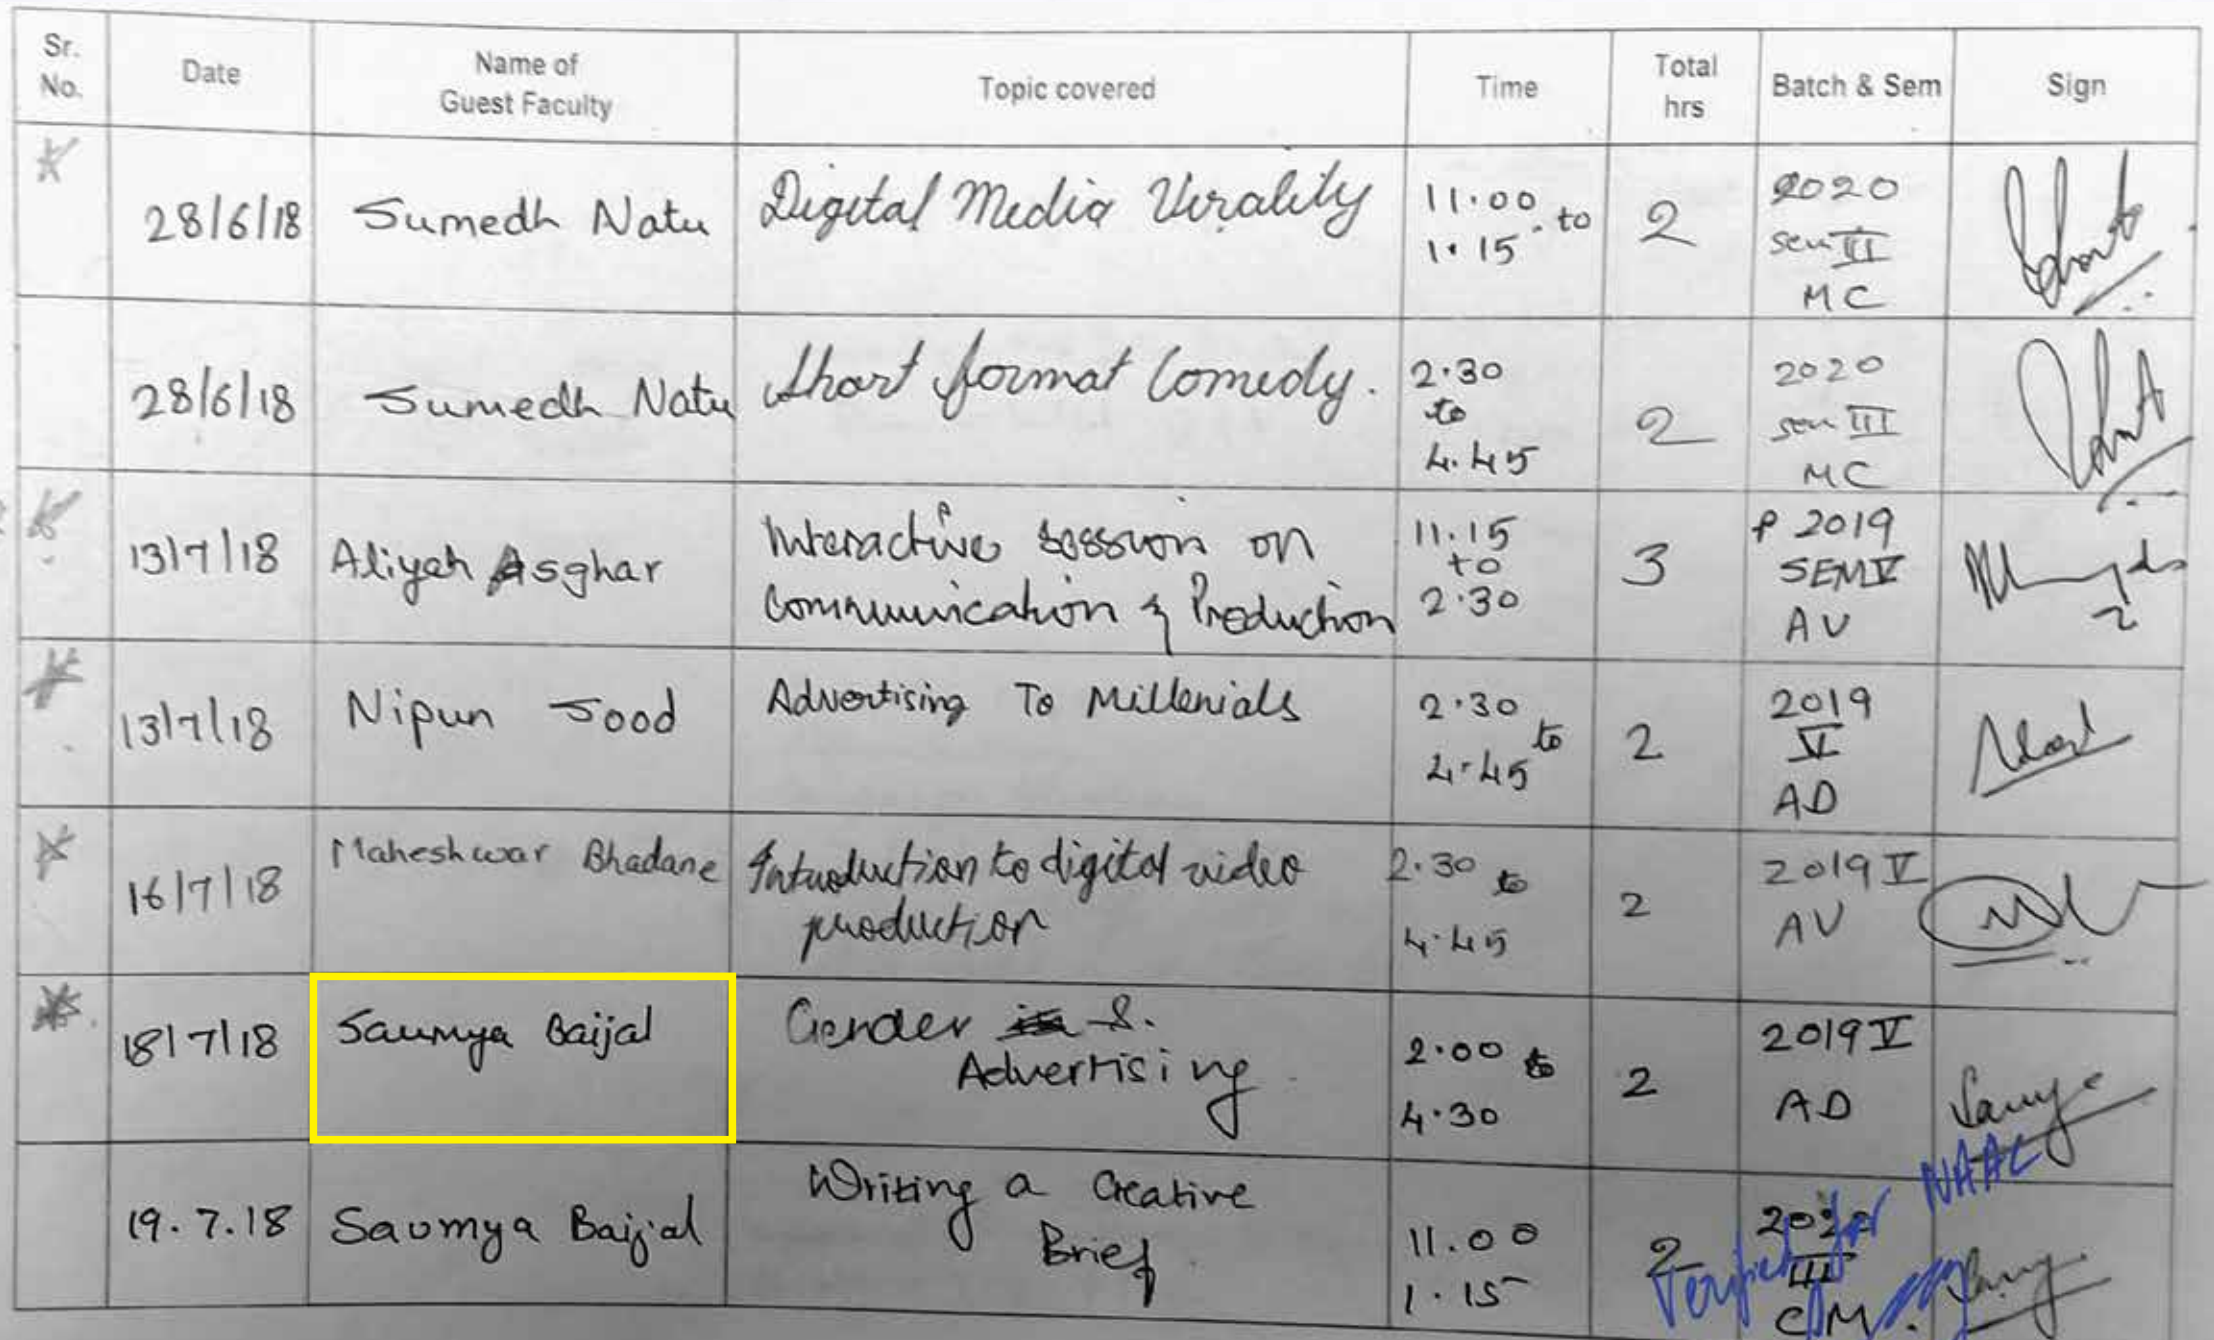 Sr. No. Date Name of Guest Faculty Topic covered Time Total hrs Batch & Sem Sign
28/6/18 Sumedh Natu Digital Media Virality 11.00 to 1.15 2 2020 sem III MC
28/6/18 Sumedh Natu Short format Comedy. 2.30 to 4.45 2 2020 sem III MC
13/7/18 Aliyah Asghar Interactive session on Communication & Production 11.15 to 2.30 3 2019 SEM V AV
13/7/18 Nipun Sood Advertising To Millenials 2.30 to 4.45 2 2019 V AD
16/7/18 Maheshwar Bhadane Introduction to digital video production 2.30 to 4.45 2 2019 V AV
18/7/18 Saumya Baijal Gender &. Advertising 2.00 to 4.30 2 2019 V AD
19.7.18 Saumya Baijal Writing a Creative Brief 11.00 1.15 2 2020 III CM.
Verified for NAAC